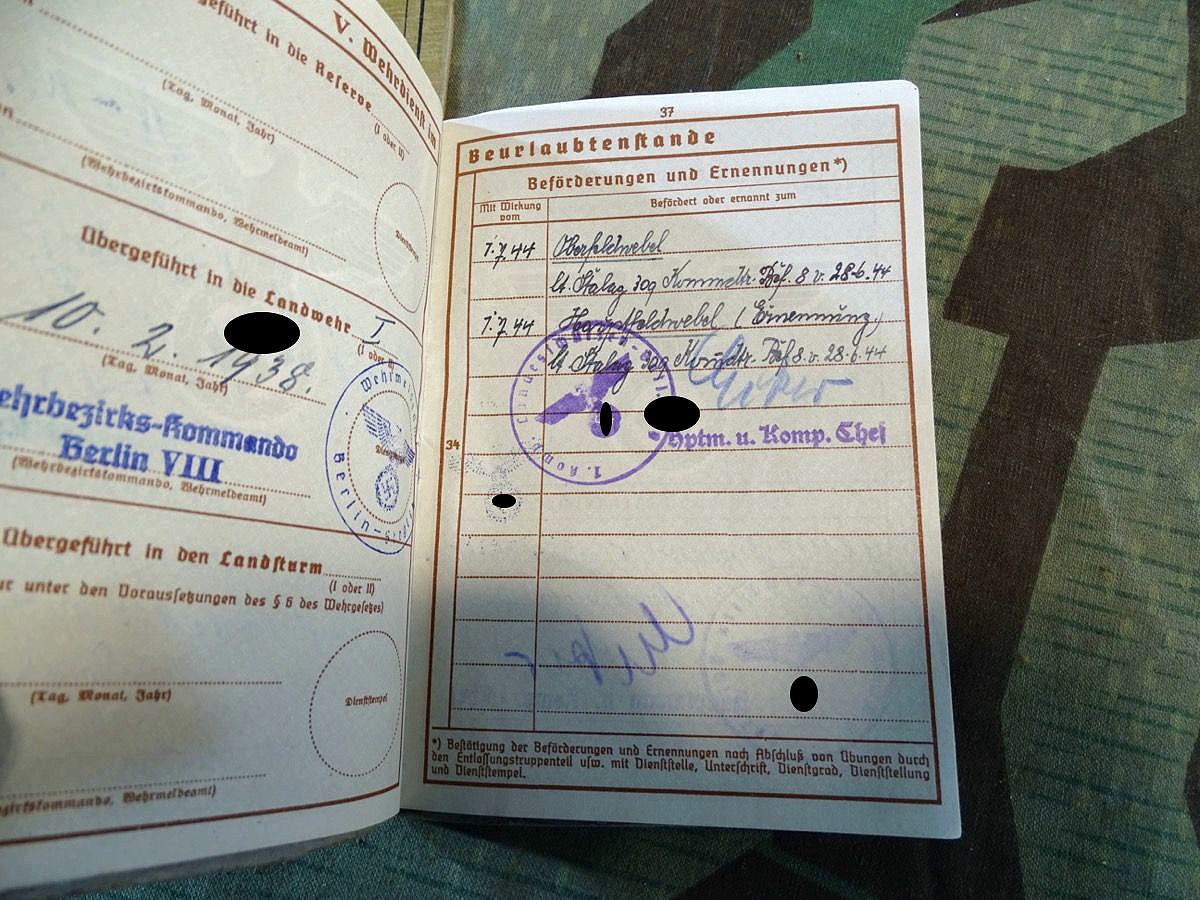 V. Wehrdienst im
geführt in die Reserve
(I oder II)
(Tag, Monat, Jahr)
(Wehrbezirkskommando, Wehrmeldeamt)
Übergeführt in die Landwehr I
(I oder II)
10. 2. 1938.
(Tag, Monat, Jahr)
ehrbezirks-Kommando
Berlin VIII
(Wehrbezirkskommando, Wehrmeldeamt)
Berlin
Übergeführt in den Landsturm
(I oder II)
ur unter den Voraussetzungen des § 6 des Wehrgesetzes)
(Tag, Monat, Jahr)
Dienststempel
zirkskommando, Wehrmeldeamt)
37
Beurlaubtenstande
Beförderungen und Ernennungen*)
Mit Wirkung vom
Befördert oder ernannt zum
1.7.44 Oberfeldwebel
lt. Stalag 309 Kommdtr. Bef. 8 v. 28.6.44
1.7.44 Hauptfeldwebel (Ernennung)
lt Stalag 309 Komdtr. Bef 8 v. 28.6.44
Hptm. u. Komp. Chef
34
*) Bestätigung der Beförderungen und Ernennungen nach Abschluß von Übungen durch
den Entlassungstruppenteil usw. mit Dienststelle, Unterschrift, Dienstgrad, Dienststellung
und Dienststempel.